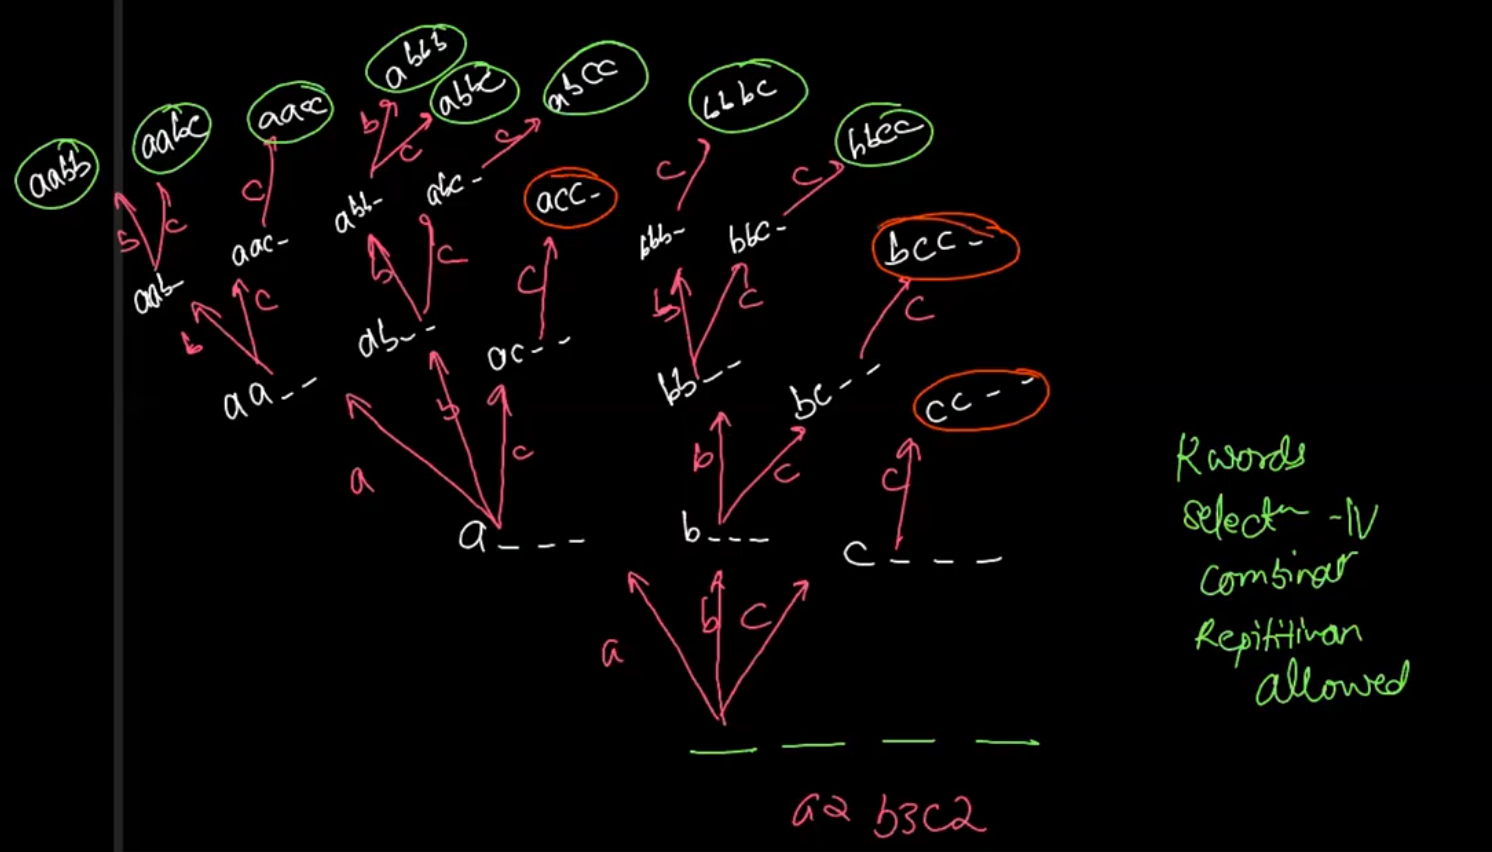 abbb
aabb
aabc
aacc
abbc
abcc
bbbc
bbcc
b
c
c
b
c
c
c
c
aab-
aac-
abb-
abc-
acc-
bbb-
bbc-
bcc-
b
c
b
c
c
b
c
c
aa--
ab--
ac--
bb--
bc--
cc--
a
b
c
b
c
c
a---
b---
c---
a
b
c
a2 b3c2
K words
Select^n -IV
Combinat
Repititivan
allowed